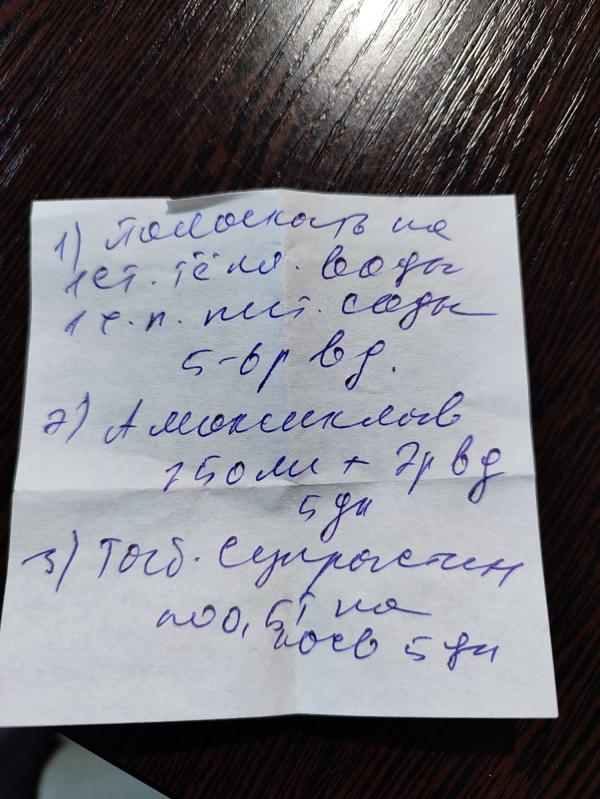 1) Полоскать на
1 ст. тёпл. воды
1 ч. л. пит. соды
5-6р в д.
2) Амоксиклав
250мг + 2р в д
5 дн
3) Таб. Супрастин
по 0,5т на
ночь 5 дн